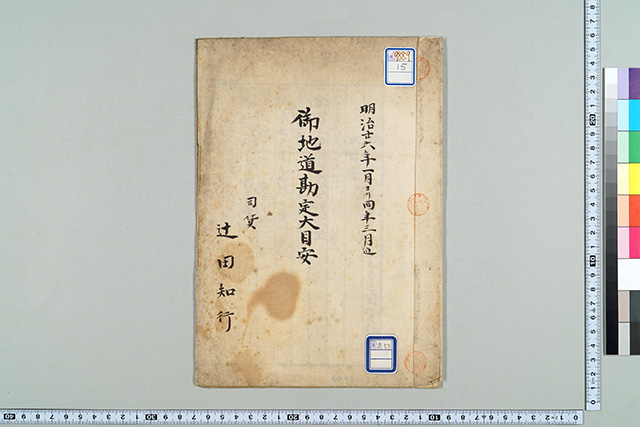 明治廿六年一月ヨリ同年三月迄
御地道勘定大目安
司貨
辻田知行
15